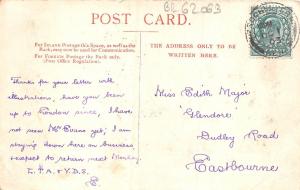 BR 62063
POST CARD.
FOR INLAND POSTAGE this Space, as well as the
Back, may now be used for Communication.
FOR FOREIGN POSTAGE the Back only.
(Post Office Regulation).
THE ADDRESS ONLY TO BE
WRITTEN HERE.
Thanks for your letter with
illustrations, have you been
up to London since, I have
not seen Mrs Evans yet, I am
staying down here on business
expect to return next Monday.
E.
Miss Edith Major
Glendore
Dudley Road
Eastbourne